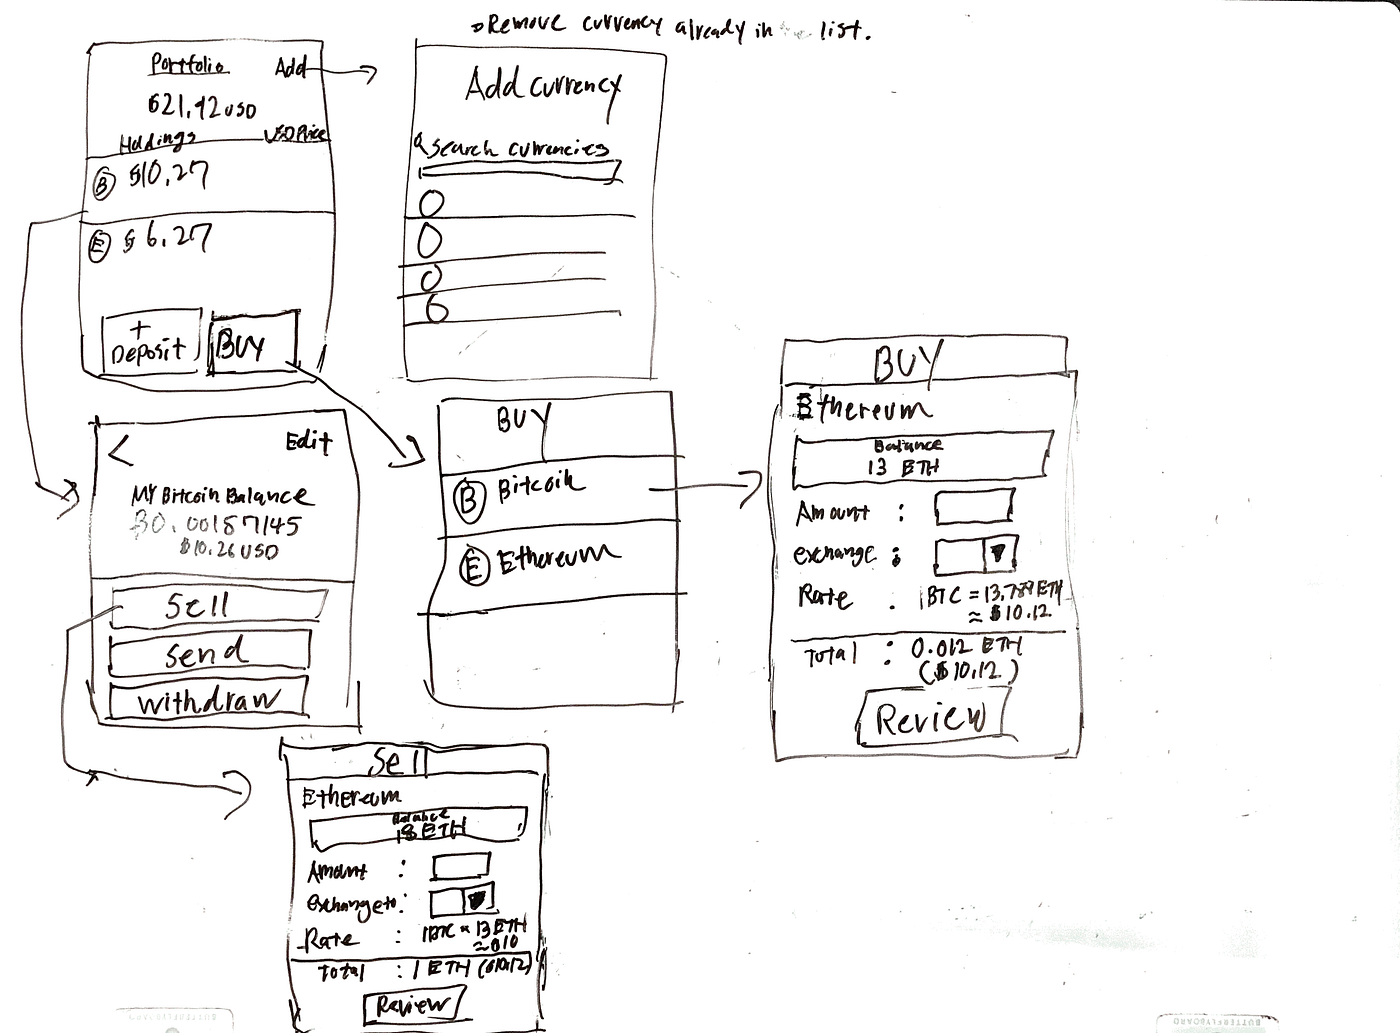 Remove currency already in the list.
Portfolio
Add
$21.42 USD
Holdings
USD Price
B $10.27
E $6.27
+
Deposit
BUY
Add currency
Search currencies
<
Edit
MY Bitcoin Balance
B0.00187145
$10.26 USD
Sell
Send
withdraw
BUY
B Bitcoin
E Ethereum
BUY
Ethereum
Balance
13 ETH
Amount :
exchange :
Rate : 1BTC = 13.789 ETH
≈ $10.12
Total : 0.012 ETH
($10.12)
Review
Sell
Ethereum
Balance
18 ETH
Amount :
exchange to :
Rate : 1BTC = 13 ETH
≈ $10
Total : 1 ETH ($10.12)
Review
BUTTERFLYBOARD
BUTTERFLYBOARD